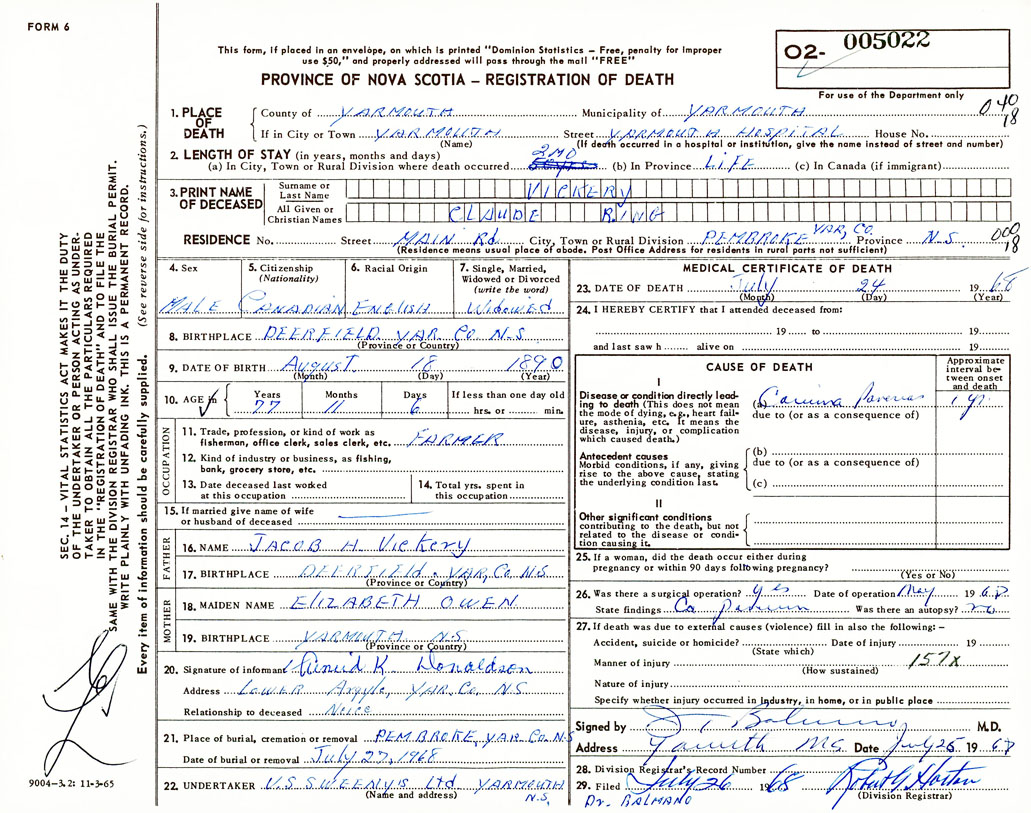 FORM 6
This form, if placed in an envelope, on which is printed "Dominion Statistics – Free, penalty for improper
use $50," and properly addressed will pass through the mail "FREE"
O2- 005022
PROVINCE OF NOVA SCOTIA – REGISTRATION OF DEATH
For use of the Department only
040
18
1. PLACE OF DEATH
County of YARMOUTH Municipality of YARMOUTH
If in City or Town YARMOUTH Street YARMOUTH HOSPITAL House No.
(Name) (If death occurred in a hospital or institution, give the name instead of street and number)
2. LENGTH OF STAY (in years, months and days)
(a) In City, Town or Rural Division where death occurred 2 MO (b) In Province LIFE (c) In Canada (if immigrant)
3. PRINT NAME OF DECEASED
Surname or Last Name VICKERY
All Given or Christian Names CLAUDE RING
RESIDENCE No. Street MAIN Rd City, Town or Rural Division PEMBROKE YAR, CO. Province N.S. 000
18
(Residence means usual place of abode. Post Office Address for residents in rural parts not sufficient)
4. Sex MALE
5. Citizenship (Nationality) CANADIAN
6. Racial Origin ENGLISH
7. Single, Married, Widowed or Divorced (write the word) WIDOWED
8. BIRTHPLACE DEERFIELD YAR. Co N.S
(Province or Country)
9. DATE OF BIRTH August 18 1890
(Month) (Day) (Year)
10. AGE in Years 77 Months 11 Days 6 If less than one day old hrs. or min.
OCCUPATION
11. Trade, profession, or kind of work as fisherman, office clerk, sales clerk, etc. FARMER
12. Kind of industry or business, as fishing, bank, grocery store, etc.
13. Date deceased last worked at this occupation
14. Total yrs. spent in this occupation
15. If married give name of wife or husband of deceased
FATHER
16. NAME JACOB H. Vickery
17. BIRTHPLACE DEERFIELD. YAR, Co N.S
(Province or Country)
MOTHER
18. MAIDEN NAME ELIZABETH OWEN
19. BIRTHPLACE YARMOUTH N.S
(Province or Country)
20. Signature of informant K. Donaldson
Address Lower Argyle, YAR. Co. N.S
Relationship to deceased Neice
21. Place of burial, cremation or removal PEMBROKE, YAR. Co. N.S
Date of burial or removal July 27, 1968
22. UNDERTAKER V.S SWEENY'S Ltd YARMOUTH N.S.
(Name and address)
MEDICAL CERTIFICATE OF DEATH
23. DATE OF DEATH July 24 1968
(Month) (Day) (Year)
24. I HEREBY CERTIFY that I attended deceased from:
19 to 19
and last saw h alive on 19
CAUSE OF DEATH
Approximate interval between onset and death
I
Disease or condition directly leading to death (This does not mean the mode of dying, e.g., heart failure, asthenia, etc. It means the disease, injury, or complication which caused death.)
(a) 1 yr.
due to (or as a consequence of)
Antecedent causes
Morbid conditions, if any, giving rise to the above cause, stating the underlying condition last.
(b)
due to (or as a consequence of)
(c)
II
Other significant conditions
contributing to the death, but not related to the disease or condition causing it.
25. If a woman, did the death occur either during pregnancy or within 90 days following pregnancy?
(Yes or No)
26. Was there a surgical operation? yes Date of operation May 1968
State findings Ca Was there an autopsy? no
27. If death was due to external causes (violence) fill in also the following: –
Accident, suicide or homicide? Date of injury 19
(State which)
Manner of injury 157X
(How sustained)
Nature of injury
Specify whether injury occurred in industry, in home, or in public place
Signed by Balmano M.D.
Address Date July 25 1968
28. Division Registrar's Record Number
29. Filed July 26 1968 Robert G. Horton
(Division Registrar)
Dr. BALMANO
SEC. 14 – VITAL STATISTICS ACT MAKES IT THE DUTY
OF THE UNDERTAKER OR PERSON ACTING AS UNDER-
TAKER TO OBTAIN ALL THE PARTICULARS REQUIRED
IN THE "REGISTRATION OF DEATH" AND TO FILE THE
SAME WITH THE DIVISION REGISTRAR WHO SHALL ISSUE THE BURIAL PERMIT.
WRITE PLAINLY WITH UNFADING INK. THIS IS A PERMANENT RECORD.
Every item of information should be carefully supplied. (See reverse side for instructions.)
9004–3.2: 11-3-65